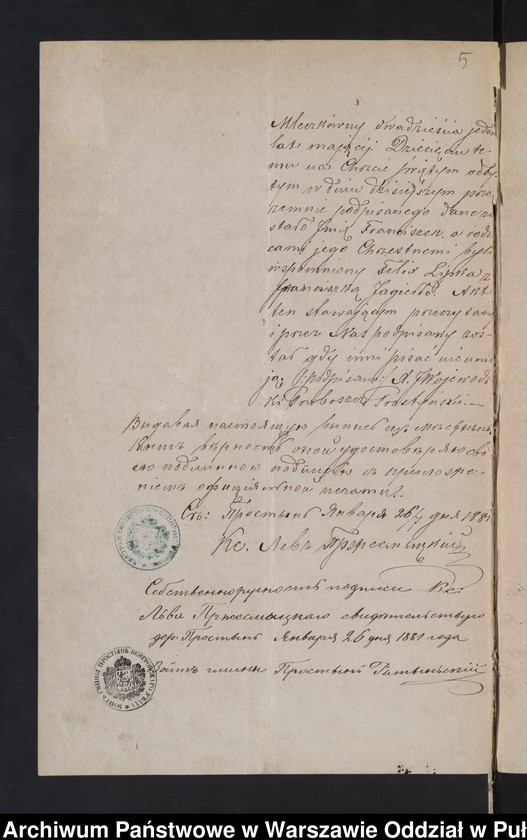 5
Mleczkówny dwadzieścia jeden
lat mającej Dziecięciu te-
mu na Chrzcie świętym odby-
tym w dniu dzisiejszym przez
zemnie podpisanego dane zo
stało Imię Franciszek, a rodzi
cami jego Chrzestnemi byli
wspomniony Felix Lipka z
Franciszką Jagiełło. Akt
ten stawającym przeczytany
i przez Nas podpisany zos-
tał gdy inni pisać nie umie
ją /:podpisano:/ A. Wojewódz
ki Proboszcz Prostyński.—
Выдавая настоящую выпись изъ мѣстныхъ
Книгъ вѣрность оной удостовѣряю сво
ею подлинною подписью съ приложе-
ніемъ официальной печати.
Января 26/7 дня 188
Кс. Левъ Пржесмыцкій
Собственноручность подписи Кс.
Льва Пржесмыцкаго свидѣтельствую
дер. Простынь Января 26 дня 1881 года
Войтъ гмины Простынь
Archiwum Państwowe w Warszawie Oddział w Puł